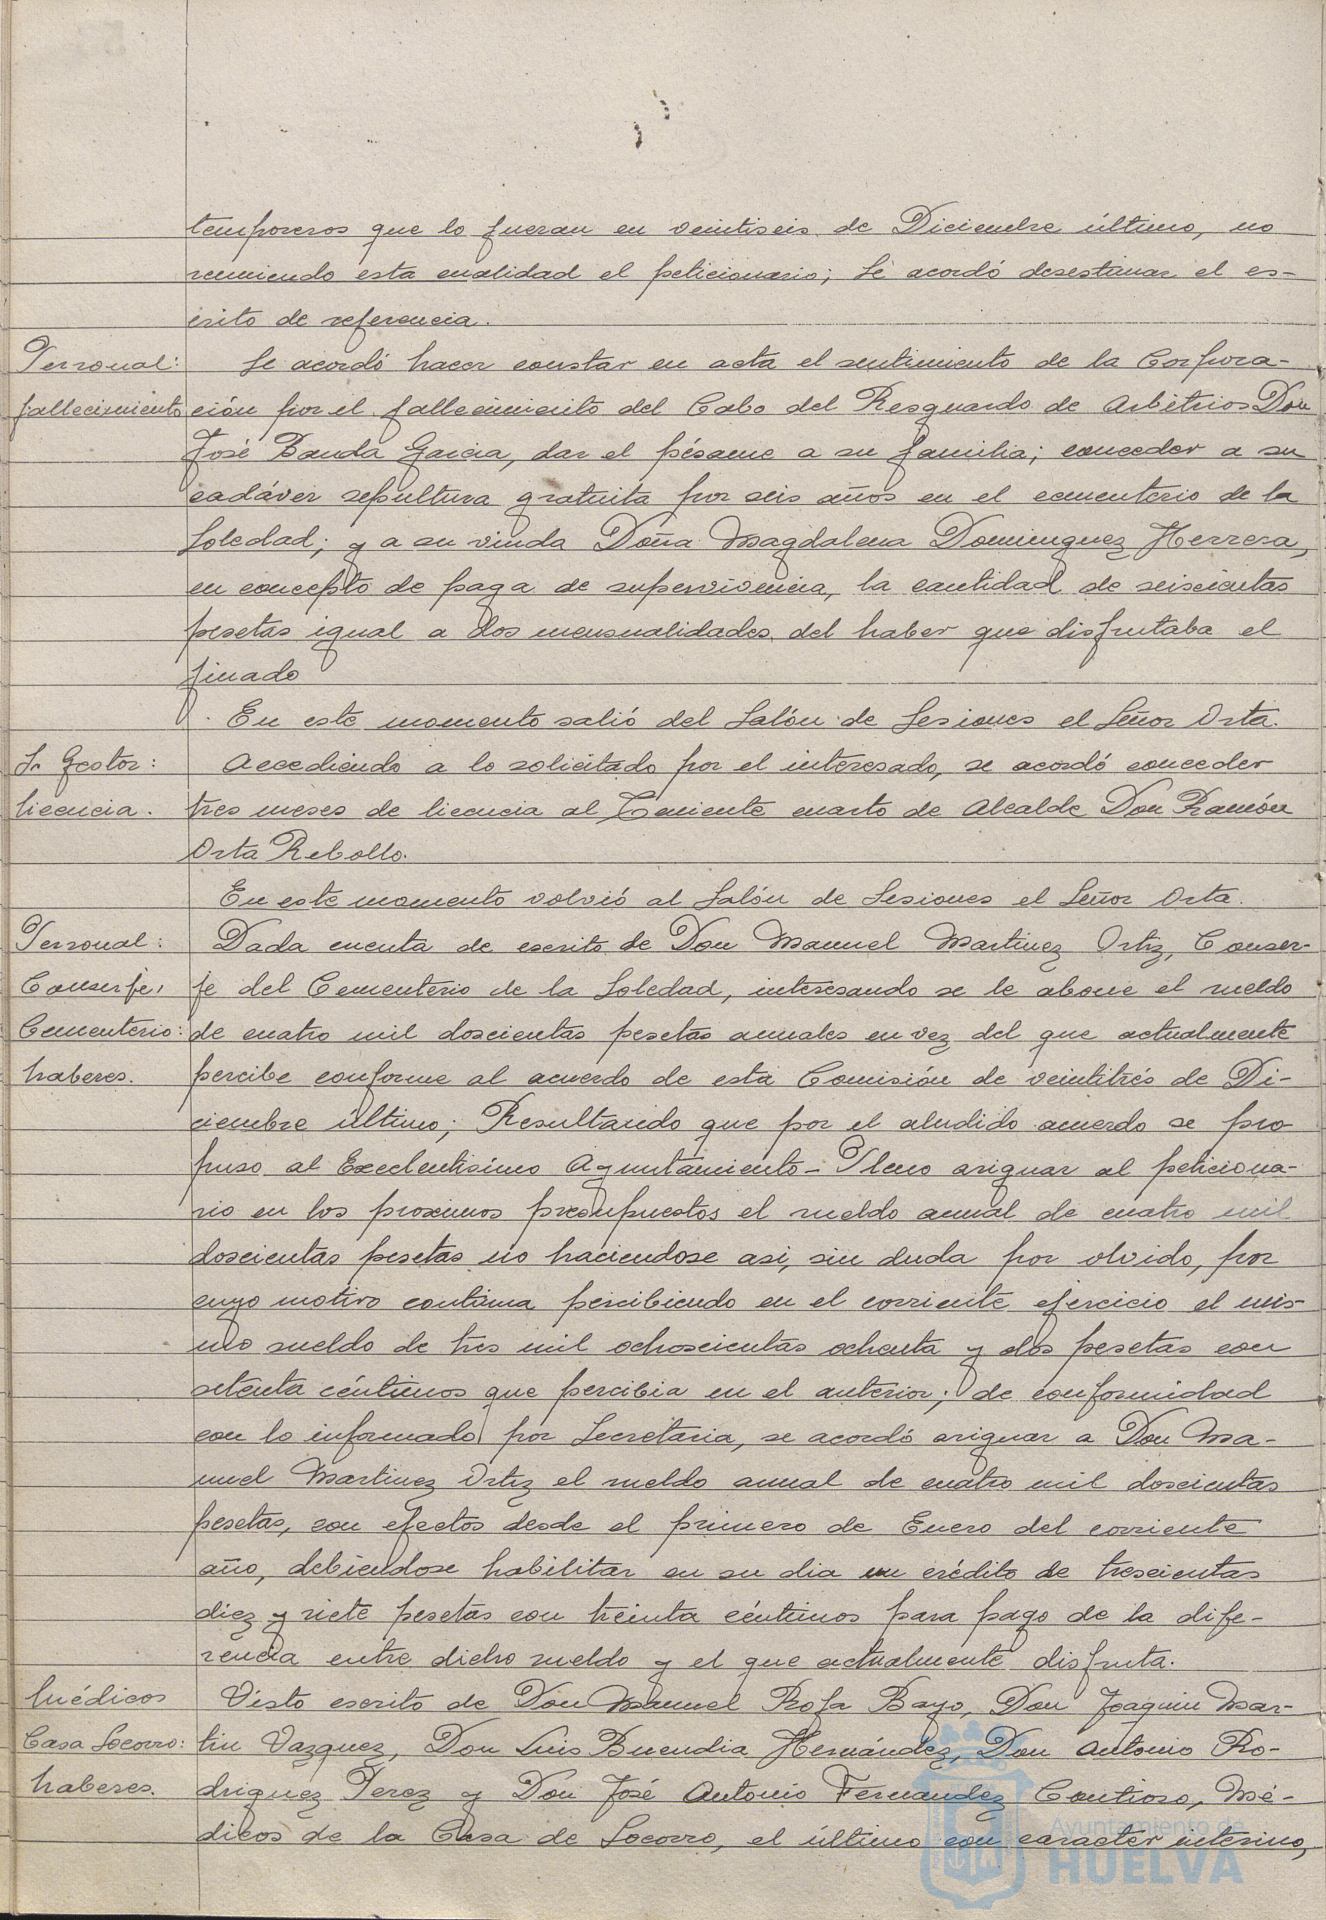 temporeros que lo fueran en veintiseis de Diciembre último, no
reuniendo esta cualidad el peticionario; Se acordó desestimar el es-
crito de referencia.
Personal: Se acordó hacer constar en acta el sentimiento de la Corpora-
fallecimiento ción por el fallecimiento del Cabo del Resguardo de Arbitrios Don
José Banda Garcia, dar el pésame a su familia; conceder a su
cadáver sepultura gratuita por seis años en el cementerio de la
Soledad; y a su viuda Doña Magdalena Dominguez Herrera,
en concepto de paga de supervivencia, la cantidad de seiscientas
pesetas igual a dos mensualidades del haber que disfrutaba el
finado
En este momento salió del Salón de Sesiones el Señor Orta.
Sr Gestor: Accediendo a lo solicitado por el interesado, se acordó conceder
licencia. tres meses de licencia al Teniente cuarto de Alcalde Don Ramón
Orta Rebollo.
En este momento volvió al Salón de Sesiones el Señor Orta.
Personal: Dada cuenta de escrito de Don Manuel Martinez Ortiz, Conser-
Conserje, je del Cementerio de la Soledad, interesando se le abone el sueldo
Cementerio: de cuatro mil doscientas pesetas anuales en vez del que actualmente
haberes. percibe conforme al acuerdo de esta Comisión de veintitrés de Di-
ciembre último; Resultando que por el aludido acuerdo se pro
puso al Excelentisimo Ayuntamiento-Pleno asignar al peticiona-
rio en los proximos presupuestos el sueldo anual de cuatro mil
doscientas pesetas no haciendose asi, sin duda por olvido, por
cuyo motivo continua percibiendo en el corriente ejercicio el mis-
mo sueldo de tres mil ochoscientas ochenta y dos pesetas con
setenta céntimos que percibia en el anterior; de conformidad
con lo informado por Secretaria, se acordó asignar a Don Ma-
nuel Martinez Ortiz el sueldo anual de cuatro mil doscientas
pesetas, con efectos desde el primero de Enero del corriente
año, debiendose habilitar en su dia un crédito de trescientas
diez y siete pesetas con treinta céntimos para pago de la dife-
rencia entre dicho sueldo y el que actualmente disfruta.
Médicos Visto escrito de Don Manuel Rofa Bayo, Don Joaquin Mar-
Casa Socorro: tin Vazquez, Don Luis Buendia Hernández, Don Antonio Ro-
haberes. driguez Perez y Don José Antonio Fernandez Contioso, Mé-
dicos de la Casa de Socorro, el último con caracter interino,
Ayuntamiento de
HUELVA